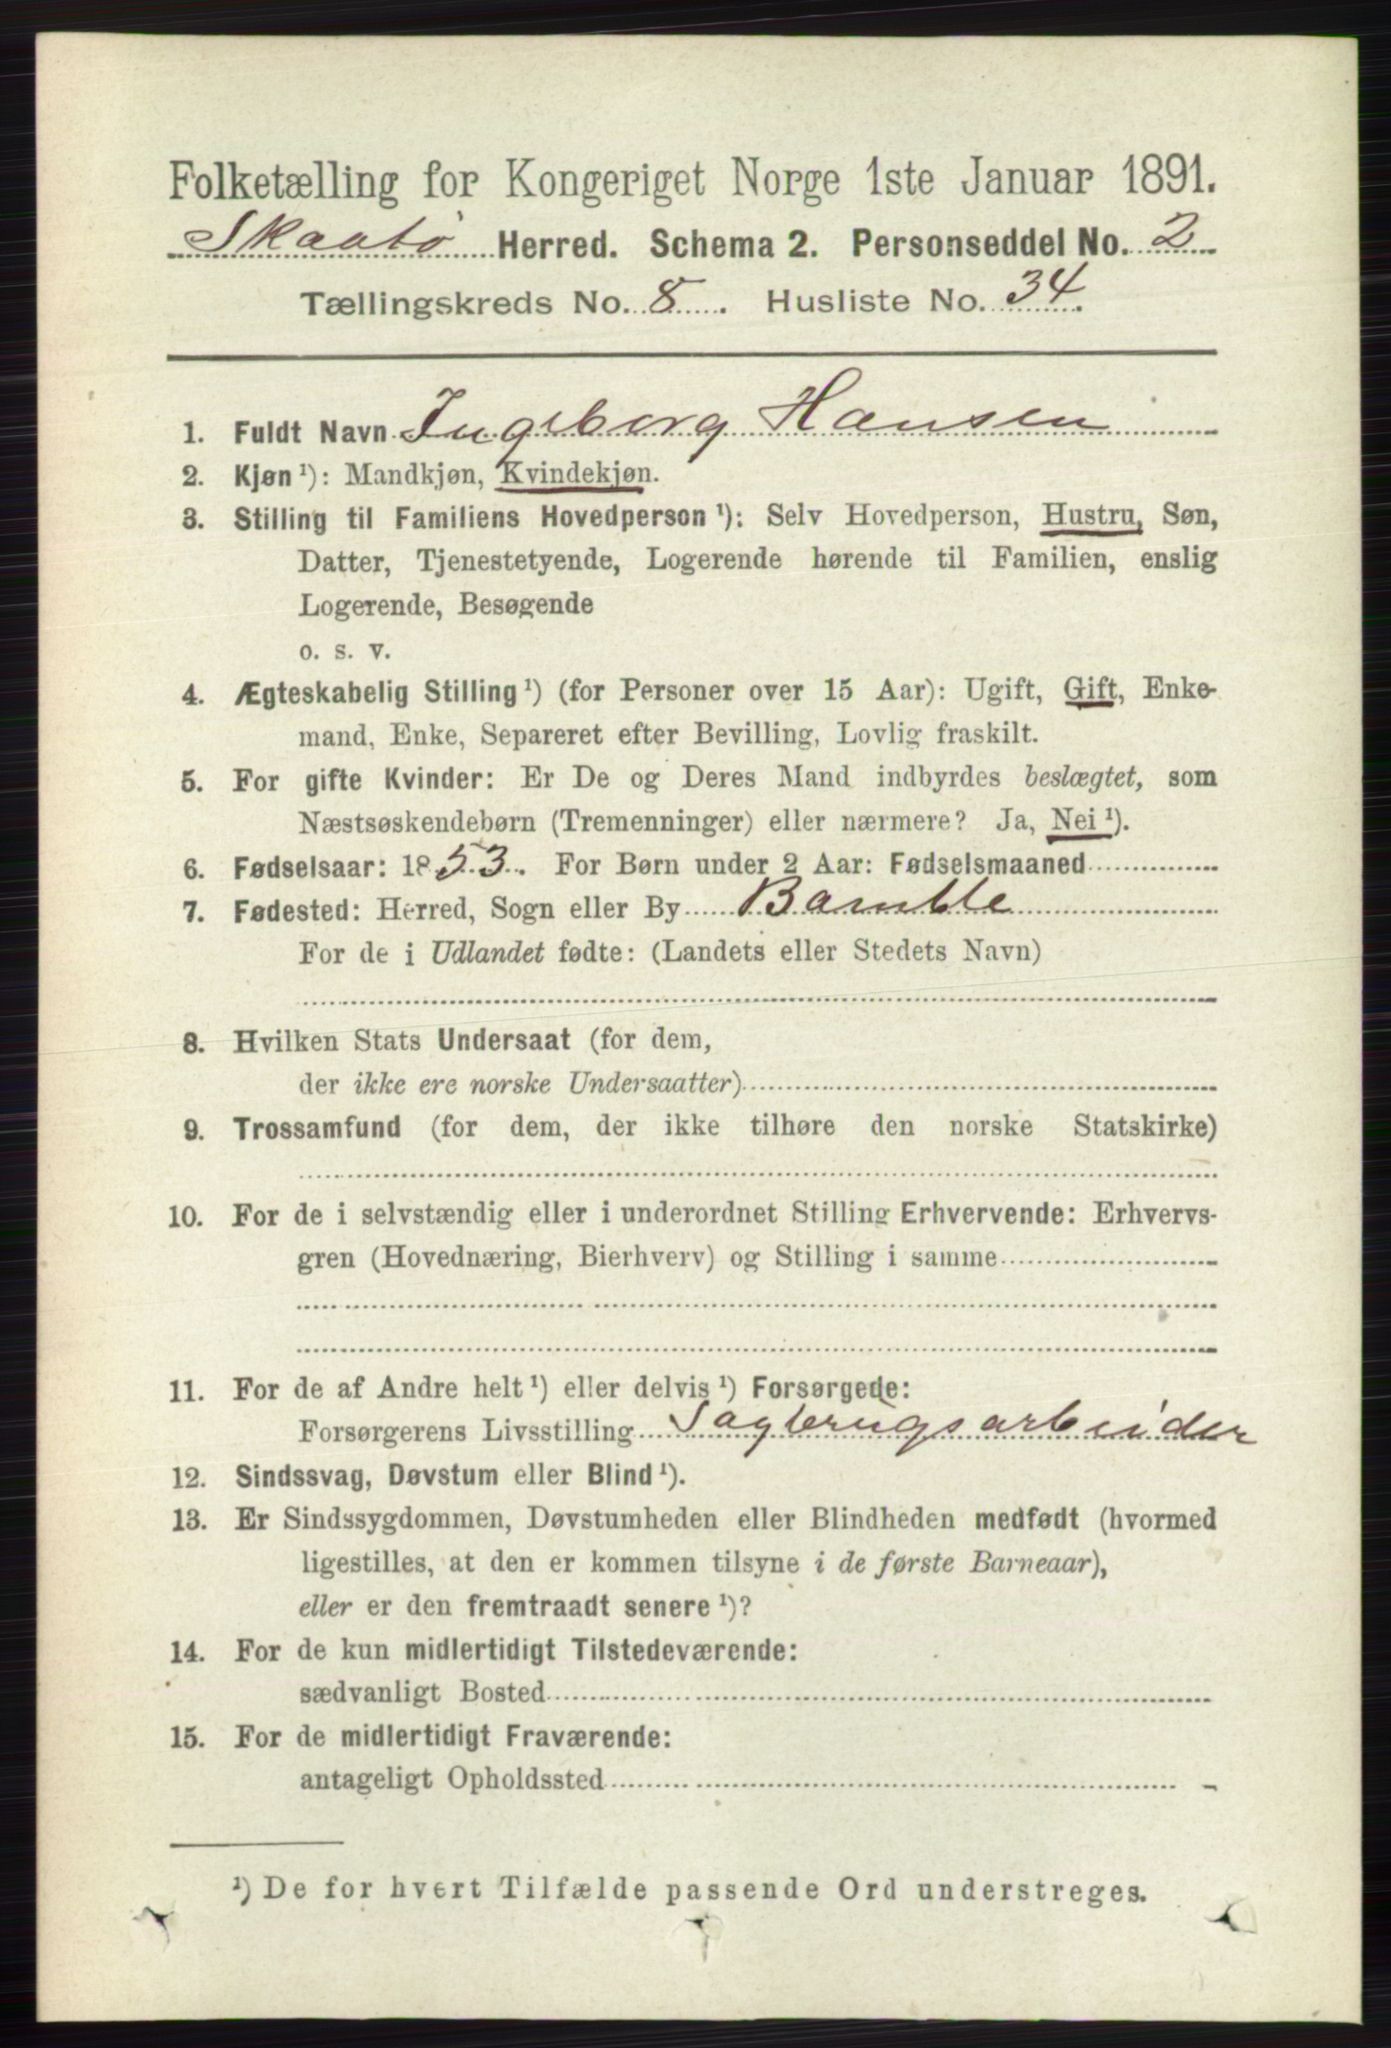 Folketælling for Kongeriget Norge 1ste Januar 1891.
Skaatø Herred. Schema 2. Personseddel No. 2
Tællingskreds No. 8. Husliste No. 34.
1. Fuldt Navn Ingeborg Hansen
2. Kjøn ¹): Mandkjøn, Kvindekjøn.
3. Stilling til Familiens Hovedperson ¹): Selv Hovedperson, Hustru, Søn,
Datter, Tjenestetyende, Logerende hørende til Familien, enslig
Logerende, Besøgende
o. s. v.
4. Ægteskabelig Stilling ¹) (for Personer over 15 Aar): Ugift, Gift, Enke-
mand, Enke, Separeret efter Bevilling, Lovlig fraskilt.
5. For gifte Kvinder: Er De og Deres Mand indbyrdes beslægtet, som
Næstsøskendebørn (Tremenninger) eller nærmere? Ja, Nei ¹).
6. Fødselsaar: 1853. For Børn under 2 Aar: Fødselsmaaned
7. Fødested: Herred, Sogn eller By Bamble
For de i Udlandet fødte: (Landets eller Stedets Navn)
8. Hvilken Stats Undersaat (for dem,
der ikke ere norske Undersaatter)
9. Trossamfund (for dem, der ikke tilhøre den norske Statskirke)
10. For de i selvstændig eller i underordnet Stilling Erhvervende: Erhvervs-
gren (Hovednæring, Bierhverv) og Stilling i samme
11. For de af Andre helt ¹) eller delvis ¹) Forsørgede:
Forsørgerens Livsstilling Sagbrugsarbeider
12. Sindssvag, Døvstum eller Blind ¹).
13. Er Sindssygdommen, Døvstumheden eller Blindheden medfødt (hvormed
ligestilles, at den er kommen tilsyne i de første Barneaar),
eller er den fremtraadt senere ¹)?
14. For de kun midlertidigt Tilstedeværende:
sædvanligt Bosted
15. For de midlertidigt Fraværende:
antageligt Opholdssted
¹) De for hvert Tilfælde passende Ord understreges.